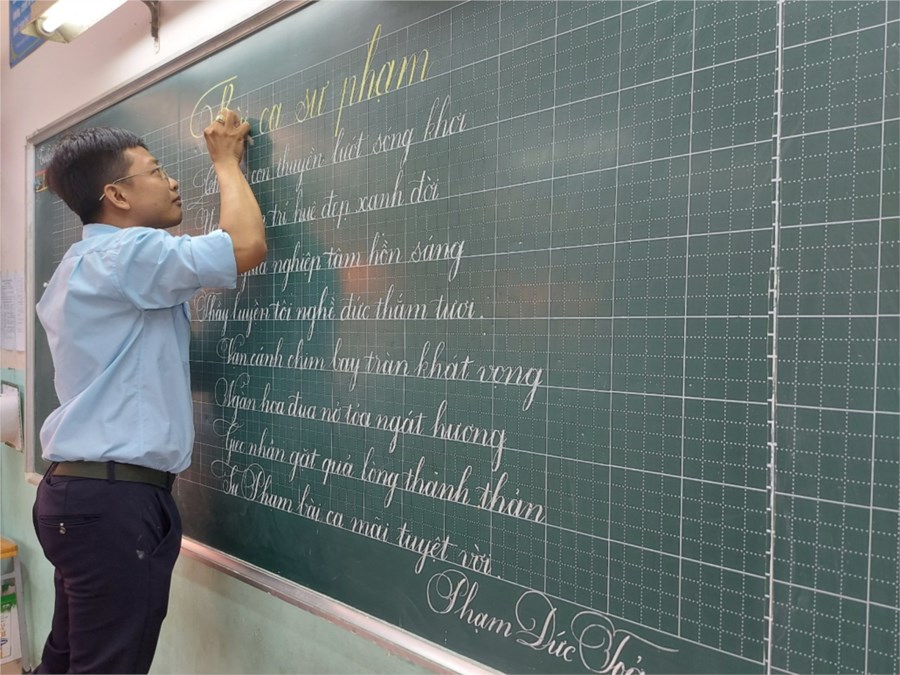 ca sư phạm
con thuyền lướt sóng khơi
trí huệ đẹp xanh đời
nghiệp tâm hồn sáng
Thầy luyện tôi nghề đức thắm tươi.
Vạn cánh chim bay tràn khát vọng
Ngàn hoa đua nở tỏa ngát hương
nhân gặt quả lòng thanh thản
Sư Phạm bài ca mãi tuyệt vời.
Phạm Đức